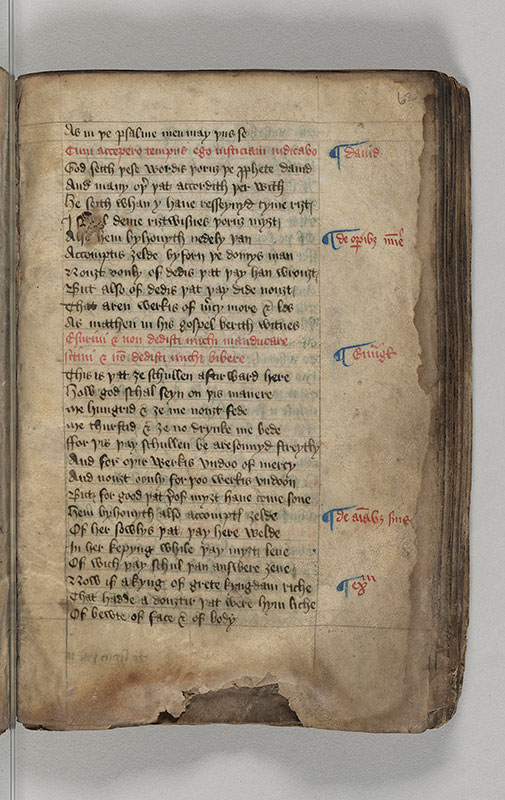 62
As in þe psalme men may þus se
Cum accepero tempus ego iusticiam iudicabo
dauid
God seith þese wordis þoruȝ þe prophete dauid
And many oþer þat accordith þer with
He seith whan y haue resseyuyd tyme riȝt
I schal deme riȝtwisnes þoruȝ myȝt
Also hem byhouyth nedely þan
de operibus
Accomptis ȝelde byforn þe domys man
Nouȝt oonly of dedis þat þay han wrouȝt
But also of dedis þat þay dide nouȝt
That aren werkis of mercy more & les
As matheu in his gospel berith witnes
Esuriui & non dedisti michi manducare
sitiui & non dedisti michi bibere
This is þat ȝe schullen aftirward here
How god schal seyn on þis manere
me hungrid & ȝe me nouȝt fede
me thurstid & ȝe no drynke me bede
ffor þis þay schullen be aresonnyd streytly
And for oþir werkis vndoo of mercy
And nouȝt oonly for þoo werkis vndoon
But for good þat þerof myȝt haue come sone
Hem byhouyth also accomptis ȝelde
de animabus suis
Of her sowlys þat þay here welde
In her kepyng while þay myȝt leue
Of wich þay schul þan answere ȝeue
Now if a kyng of grete kyngdam riche
exm
That hadde a douȝtir þat were hym liche
Of bewte of face & of body